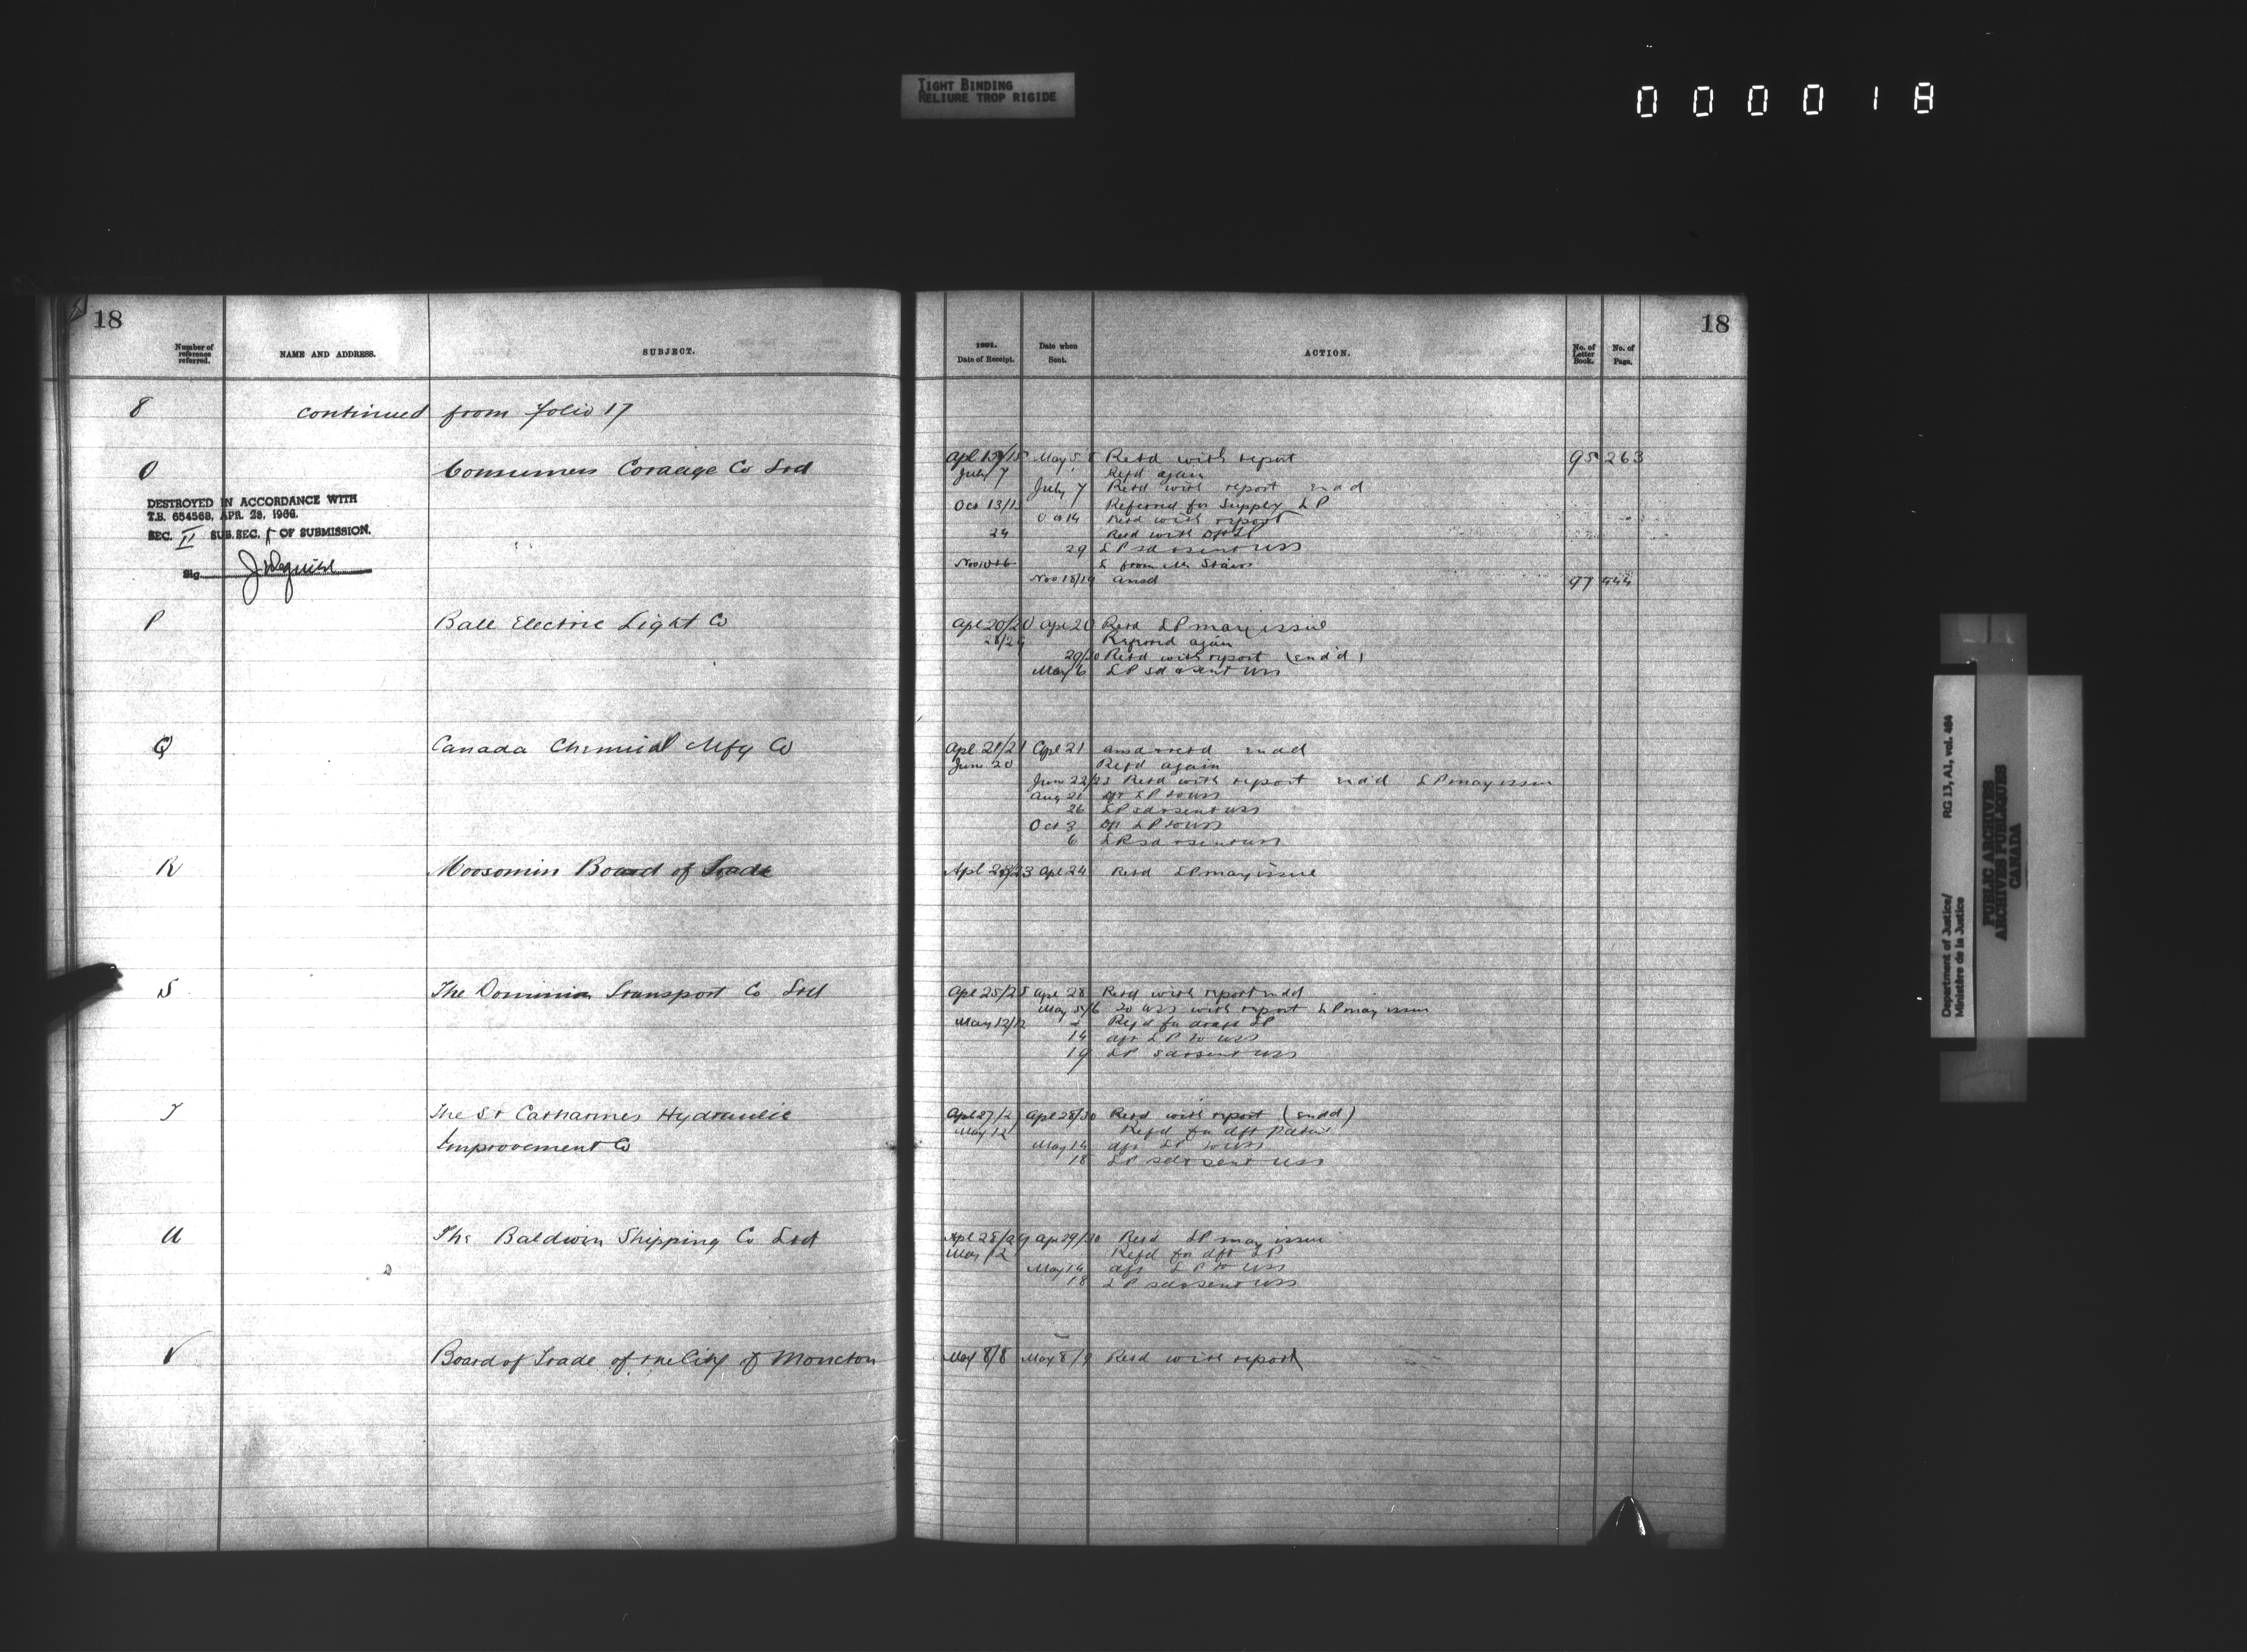 TIGHT BINDING
RELIURE TROP RIGIDE
000018
18
Number of reference referred.
NAME AND ADDRESS.
SUBJECT.
8 continued from folio 17
O Consumers Cordage Co Ltd
DESTROYED IN ACCORDANCE WITH
T.B. 654568, APR. 28, 1966.
SEC. II SUB.SEC. OF SUBMISSION.
Sig.
P Ball Electric Light Co
Q Canada Chemical Mfg Co
R Moosomin Board of Trade
S The Dominion Transport Co Ltd
T The St Catharines Hydraulic
Improvement Co
U The Baldwin Shipping Co Ltd
V Board of Trade of the City of Moncton
18
1891.
Date of Receipt.
Date when Sent.
ACTION.
No. of Letter Book.
No. of Page.
Apl 15/15 May 5 Retd with report 95 263
July 7 Refd again
July 7 Retd with report endd
Oct 13/13 Referred for Supply LP
Oct 14 Retd with report
24 Retd with
29 LP sd & sent USS
L from Mr Stairs
Nov 18/19 ansd 97 444
Apl 20/20 Apl 20 Retd LP may issue
28/29 again
29/30 Retd with report (endd)
May 6 LP sd & sent USS
Apl 21/21 Apl 21 ansd & retd endd
June 20 Refd again
June 22/23 Retd with report endd LP may issue
Aug 21 dft LP to USS
26 LP sd & sent USS
Oct 3 dft LP to USS
6 LP sd & sent USS
Apl 23/23 Apl 24 Retd LP may issue
Apl 25/25 Apl 28 Retd with report endd
May 5/6 To USS with report LP may issue
May 12/12 Refd for draft LP
14 dft LP to USS
19 LP sd & sent USS
Apl 27/27 Apl 28/30 Retd with report (endd)
May 12 Refd for dft patent
May 14 dft LP to USS
18 LP sd & sent USS
Apl 28/29 Ap 29/30 Retd LP may issue
May 12 Refd for dft LP
May 14 dft LP to USS
18 LP sd & sent USS
May 8/8 May 8/9 Retd with report
Department of Justice/ RG 13, A1, vol. 464
Ministère de la Justice
PUBLIC ARCHIVES
ARCHIVES PUBLIQUES
CANADA